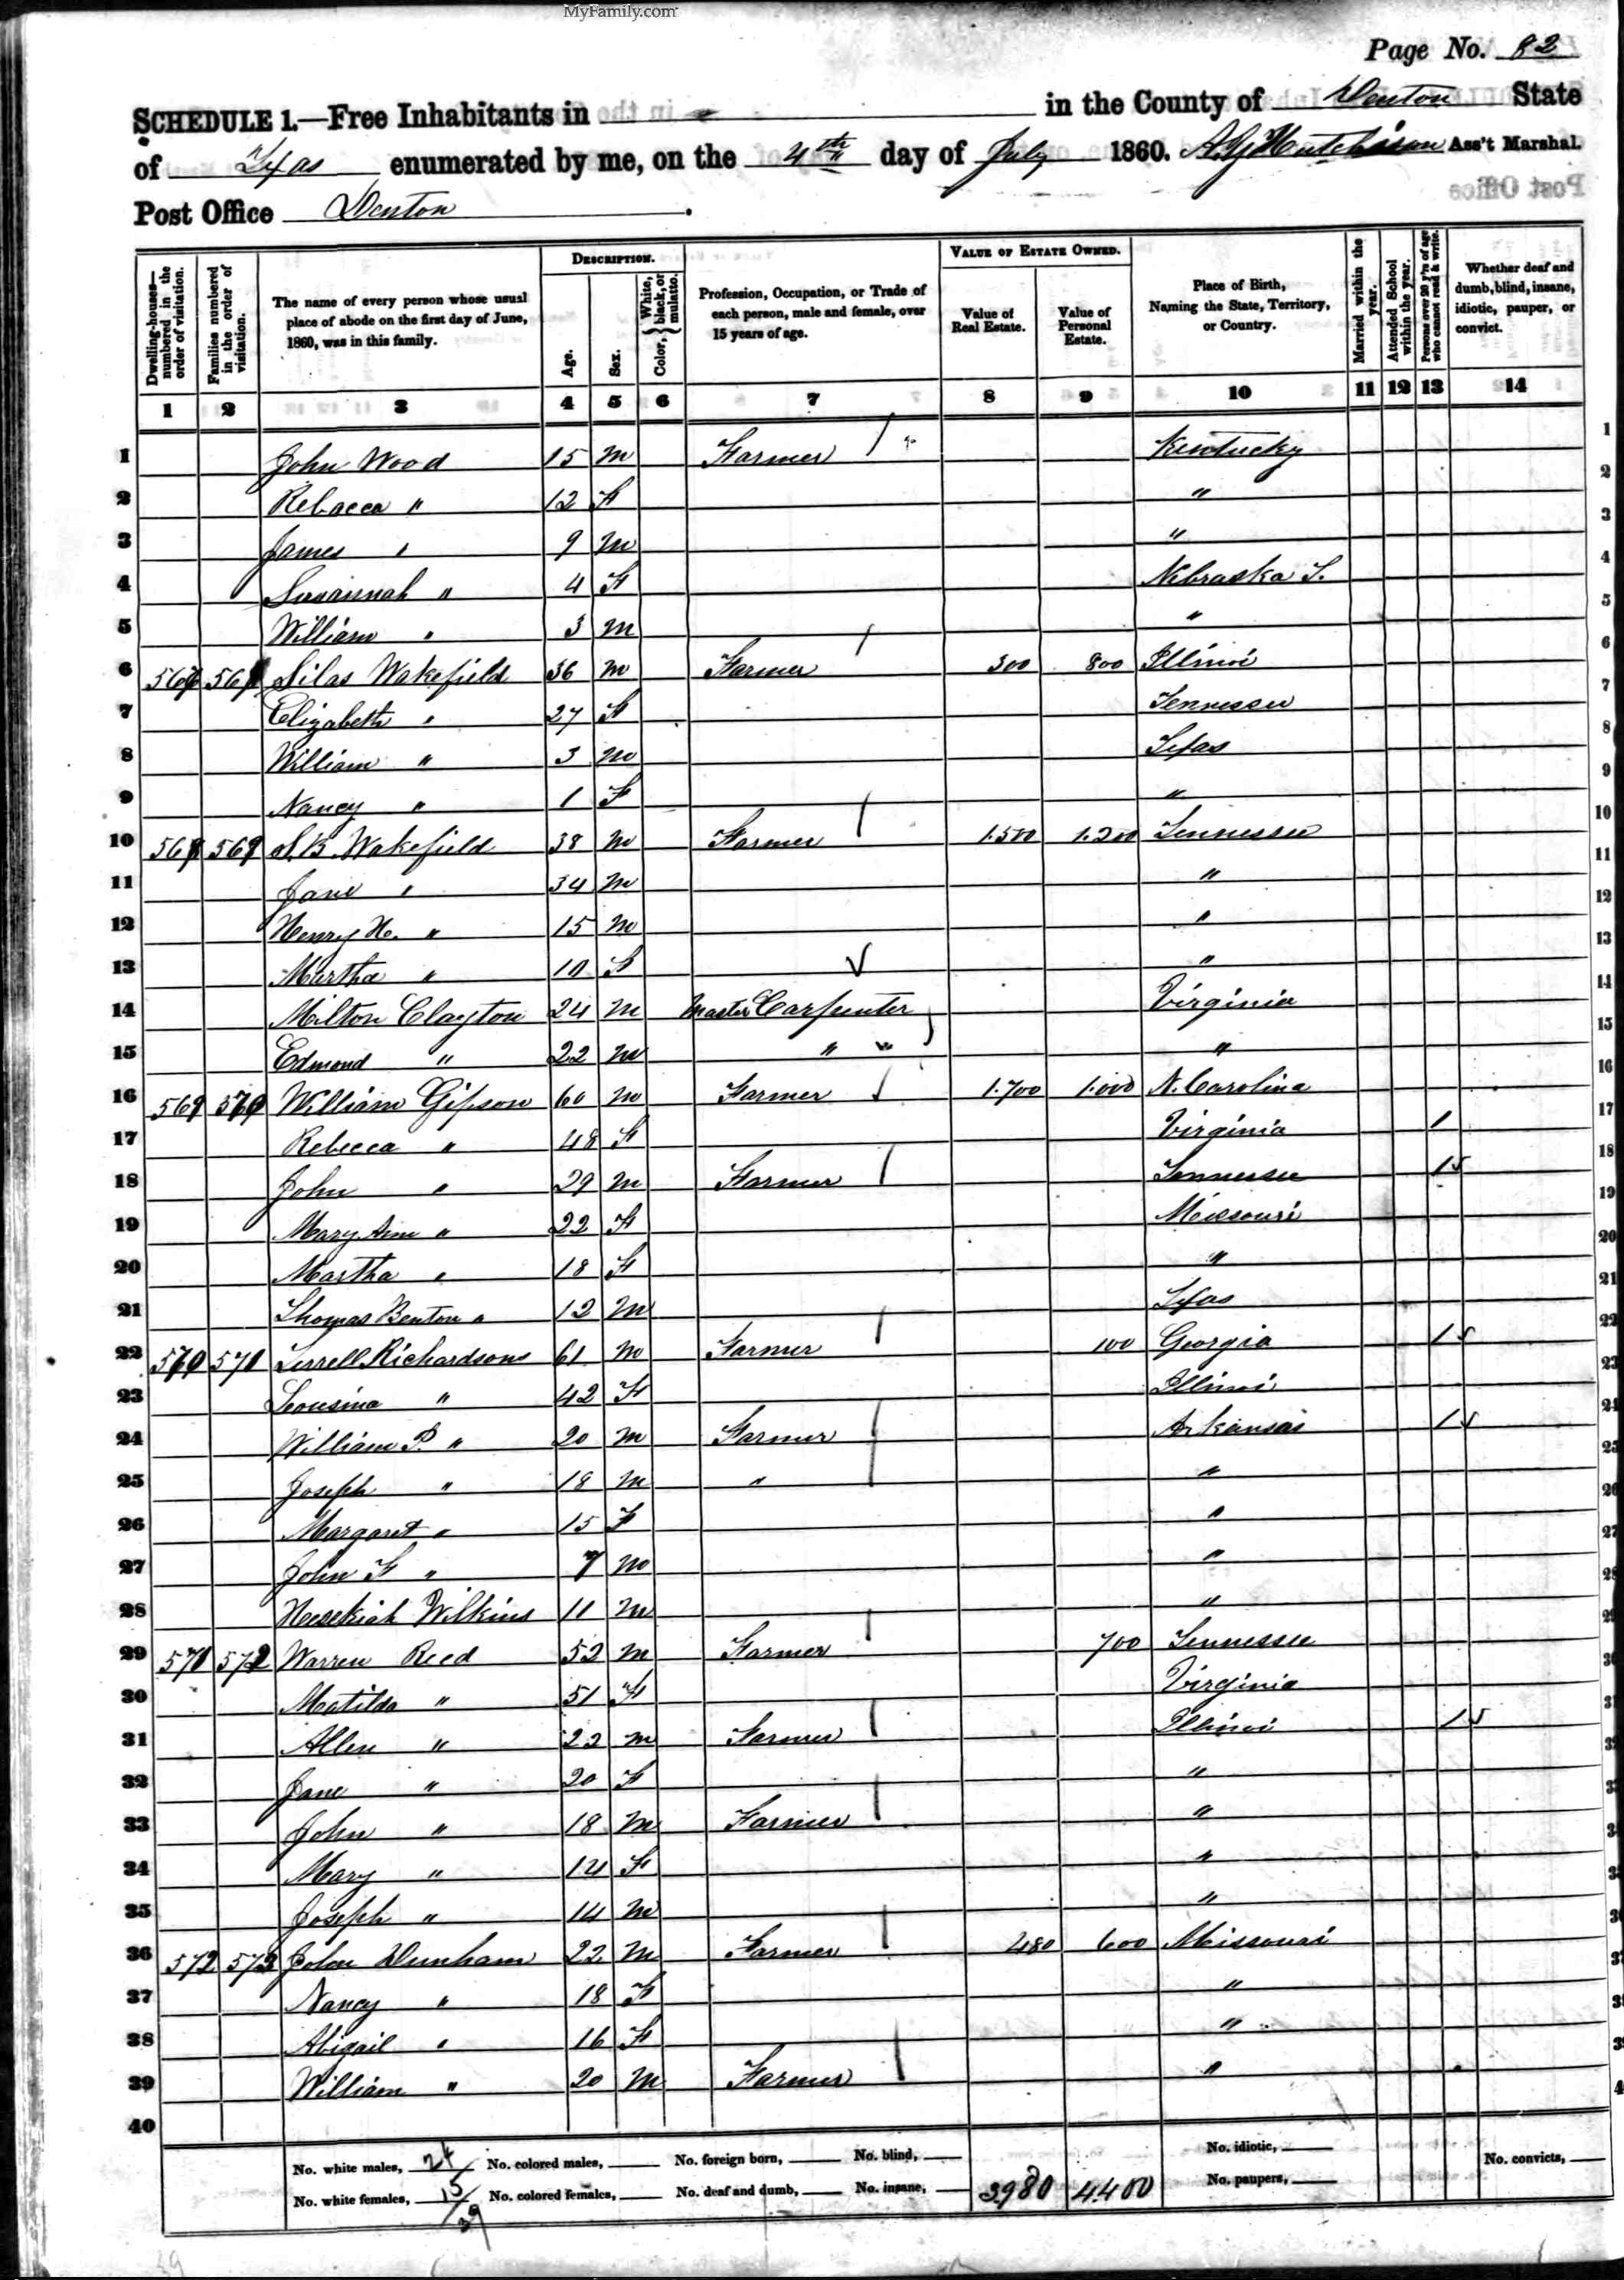 MyFamily.com
Page No. 82
SCHEDULE 1.—Free Inhabitants in in the County of Denton State
of Texas enumerated by me, on the 4th day of July 1860. A G Hutchison Ass't Marshal.
Post Office Denton.
Dwelling-houses—numbered in the order of visitation.
Families numbered in the order of visitation.
The name of every person whose usual place of abode on the first day of June, 1860, was in this family.
DESCRIPTION.
Age.
Sex.
Color, { White, black, or mulatto.
Profession, Occupation, or Trade of each person, male and female, over 15 years of age.
VALUE OF ESTATE OWNED.
Value of Real Estate.
Value of Personal Estate.
Place of Birth, Naming the State, Territory, or Country.
Married within the year.
Attended School within the year.
Persons over 20 y'rs of age who cannot read & write.
Whether deaf and dumb, blind, insane, idiotic, pauper, or convict.
1 2 3 4 5 6 7 8 9 10 11 12 13 14
1 John Wood 15 m Farmer Kentucky 1
2 Rebacca " 12 F " 2
3 James " 9 m " 3
4 Susannah " 4 F Nebraska T. 4
5 William " 3 m " 5
6 Silas Wakefield 36 m Farmer 300 800 Illinoi 6
7 Elizabeth " 27 F Tennessee 7
8 William " 3 m Texas 8
9 Nancy " 1 F " 9
10 568 569 S.B. Wakefield 38 m Farmer 1.500 1.200 Tennessee 10
11 Jane " 34 m " 11
12 Henry H. " 15 m " 12
13 Martha " 10 F " 13
14 Milton Clayton 24 m Master Carpenter Virginia 14
15 Edmond " 22 m " " " 15
16 569 570 William Gipson 60 m Farmer 1.700 1.000 N. Carolina 16
17 Rebecca " 48 F Virginia 1 17
18 John " 29 m Farmer Tennessee 1 18
19 Mary Ann " 22 F Missouri 19
20 Martha " 18 F " 20
21 Thomas Benton " 12 m Texas 21
22 570 571 Terrell Richardson 61 m Farmer 100 Georgia 1 22
23 Lousina " 42 F Illinoi 23
24 William P. " 20 m Farmer Arkansas 1 24
25 Joseph " 18 m " " 25
26 Margaret " 15 F " 26
27 John F " 7 m " 27
28 Hesekiah Wilkins 11 m " 28
29 571 572 Warren Reed 52 m Farmer 700 Tennessee
30 Matilda " 51 F Virginia
31 Allen " 22 m Farmer Illinoi 1
32 Jane " 20 F "
33 John " 18 m Farmer "
34 Mary " 14 F "
35 Joseph " 14 m "
36 572 573 John Dunham 22 m Farmer 480 600 Missouri
37 Nancy " 18 F "
38 Abigail " 16 F "
39 William " 20 m Farmer "
40
No. white males, 24 No. colored males, No. foreign born, No. blind, No. idiotic, No. convicts,
No. white females, 15 No. colored females, No. deaf and dumb, No. insane, 3980 4400 No. paupers,
39